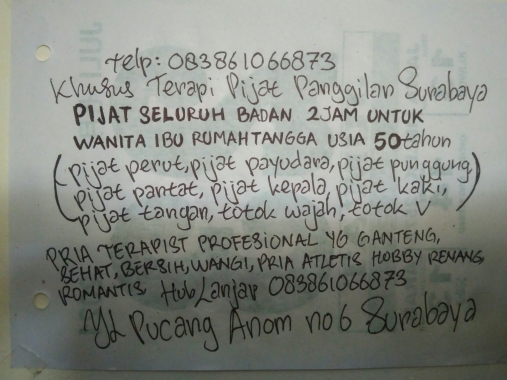 telp: 083861066873
Khusus Terapi Pijat Panggilan Surabaya
PIJAT SELURUH BADAN 2JAM UNTUK
WANITA IBU RUMAHTANGGA USIA 50tahun
(pijat perut, pijat payudara, pijat punggung,
pijat pantat, pijat kepala, pijat kaki,
pijat tangan, totok wajah, totok V)
PRIA TERAPIST PROFESIONAL YG GANTENG,
SEHAT, BERSIH, WANGI, PRIA ATLETIS HOBBY RENANG,
ROMANTIS Hub Lanjar 083861066873
Jl Pucang Anom no 6 Surabaya